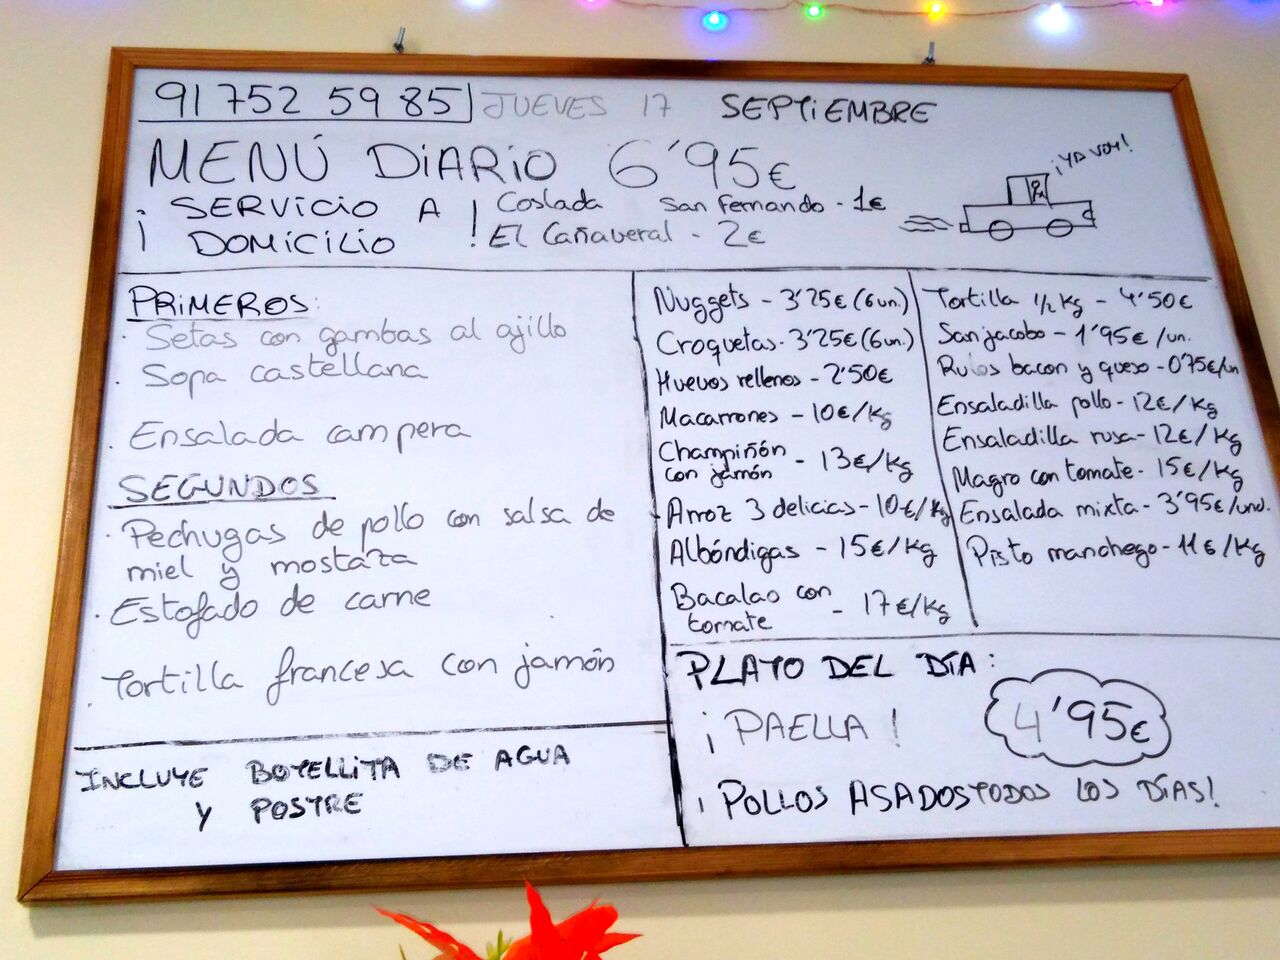 91 752 59 85 JUEVES 17 SEPTIEMBRE
MENÚ DIARIO 6'95€
¡YA VOY!
¡ SERVICIO A
¡ DOMICILIO !
Coslada San Fernando - 1€
El Cañaveral - 2€
PRIMEROS:
· Setas con gambas al ajillo
· Sopa castellana
· Ensalada campera
SEGUNDOS
· Pechugas de pollo con salsa de
miel y mostaza
· Estofado de carne
· Tortilla francesa con jamón
INCLUYE BOTELLITA DE AGUA
Y POSTRE
Nuggets - 3'25€ (6un.)
Croquetas - 3'25€ (6un.)
Huevos rellenos - 2'50€
Macarrones - 10€/Kg
Champiñón
con jamón - 13€/Kg
Arroz 3 delicias - 10€/Kg
Albóndigas - 15€/Kg
Bacalao con
tomate - 17€/Kg
Tortilla 1/2 Kg - 4'50€
Sanjacobo - 1'95€/un.
Rulos bacon y queso - 0'75€/un
Ensaladilla pollo - 12€/Kg
Ensaladilla rusa - 12€/Kg
Magro con tomate - 15€/Kg
Ensalada mixta - 3'95€/und.
Pisto manchego - 11€/Kg
PLATO DEL DÍA:
¡PAELLA!
4'95€
¡POLLOS ASADOS TODOS LOS DÍAS!